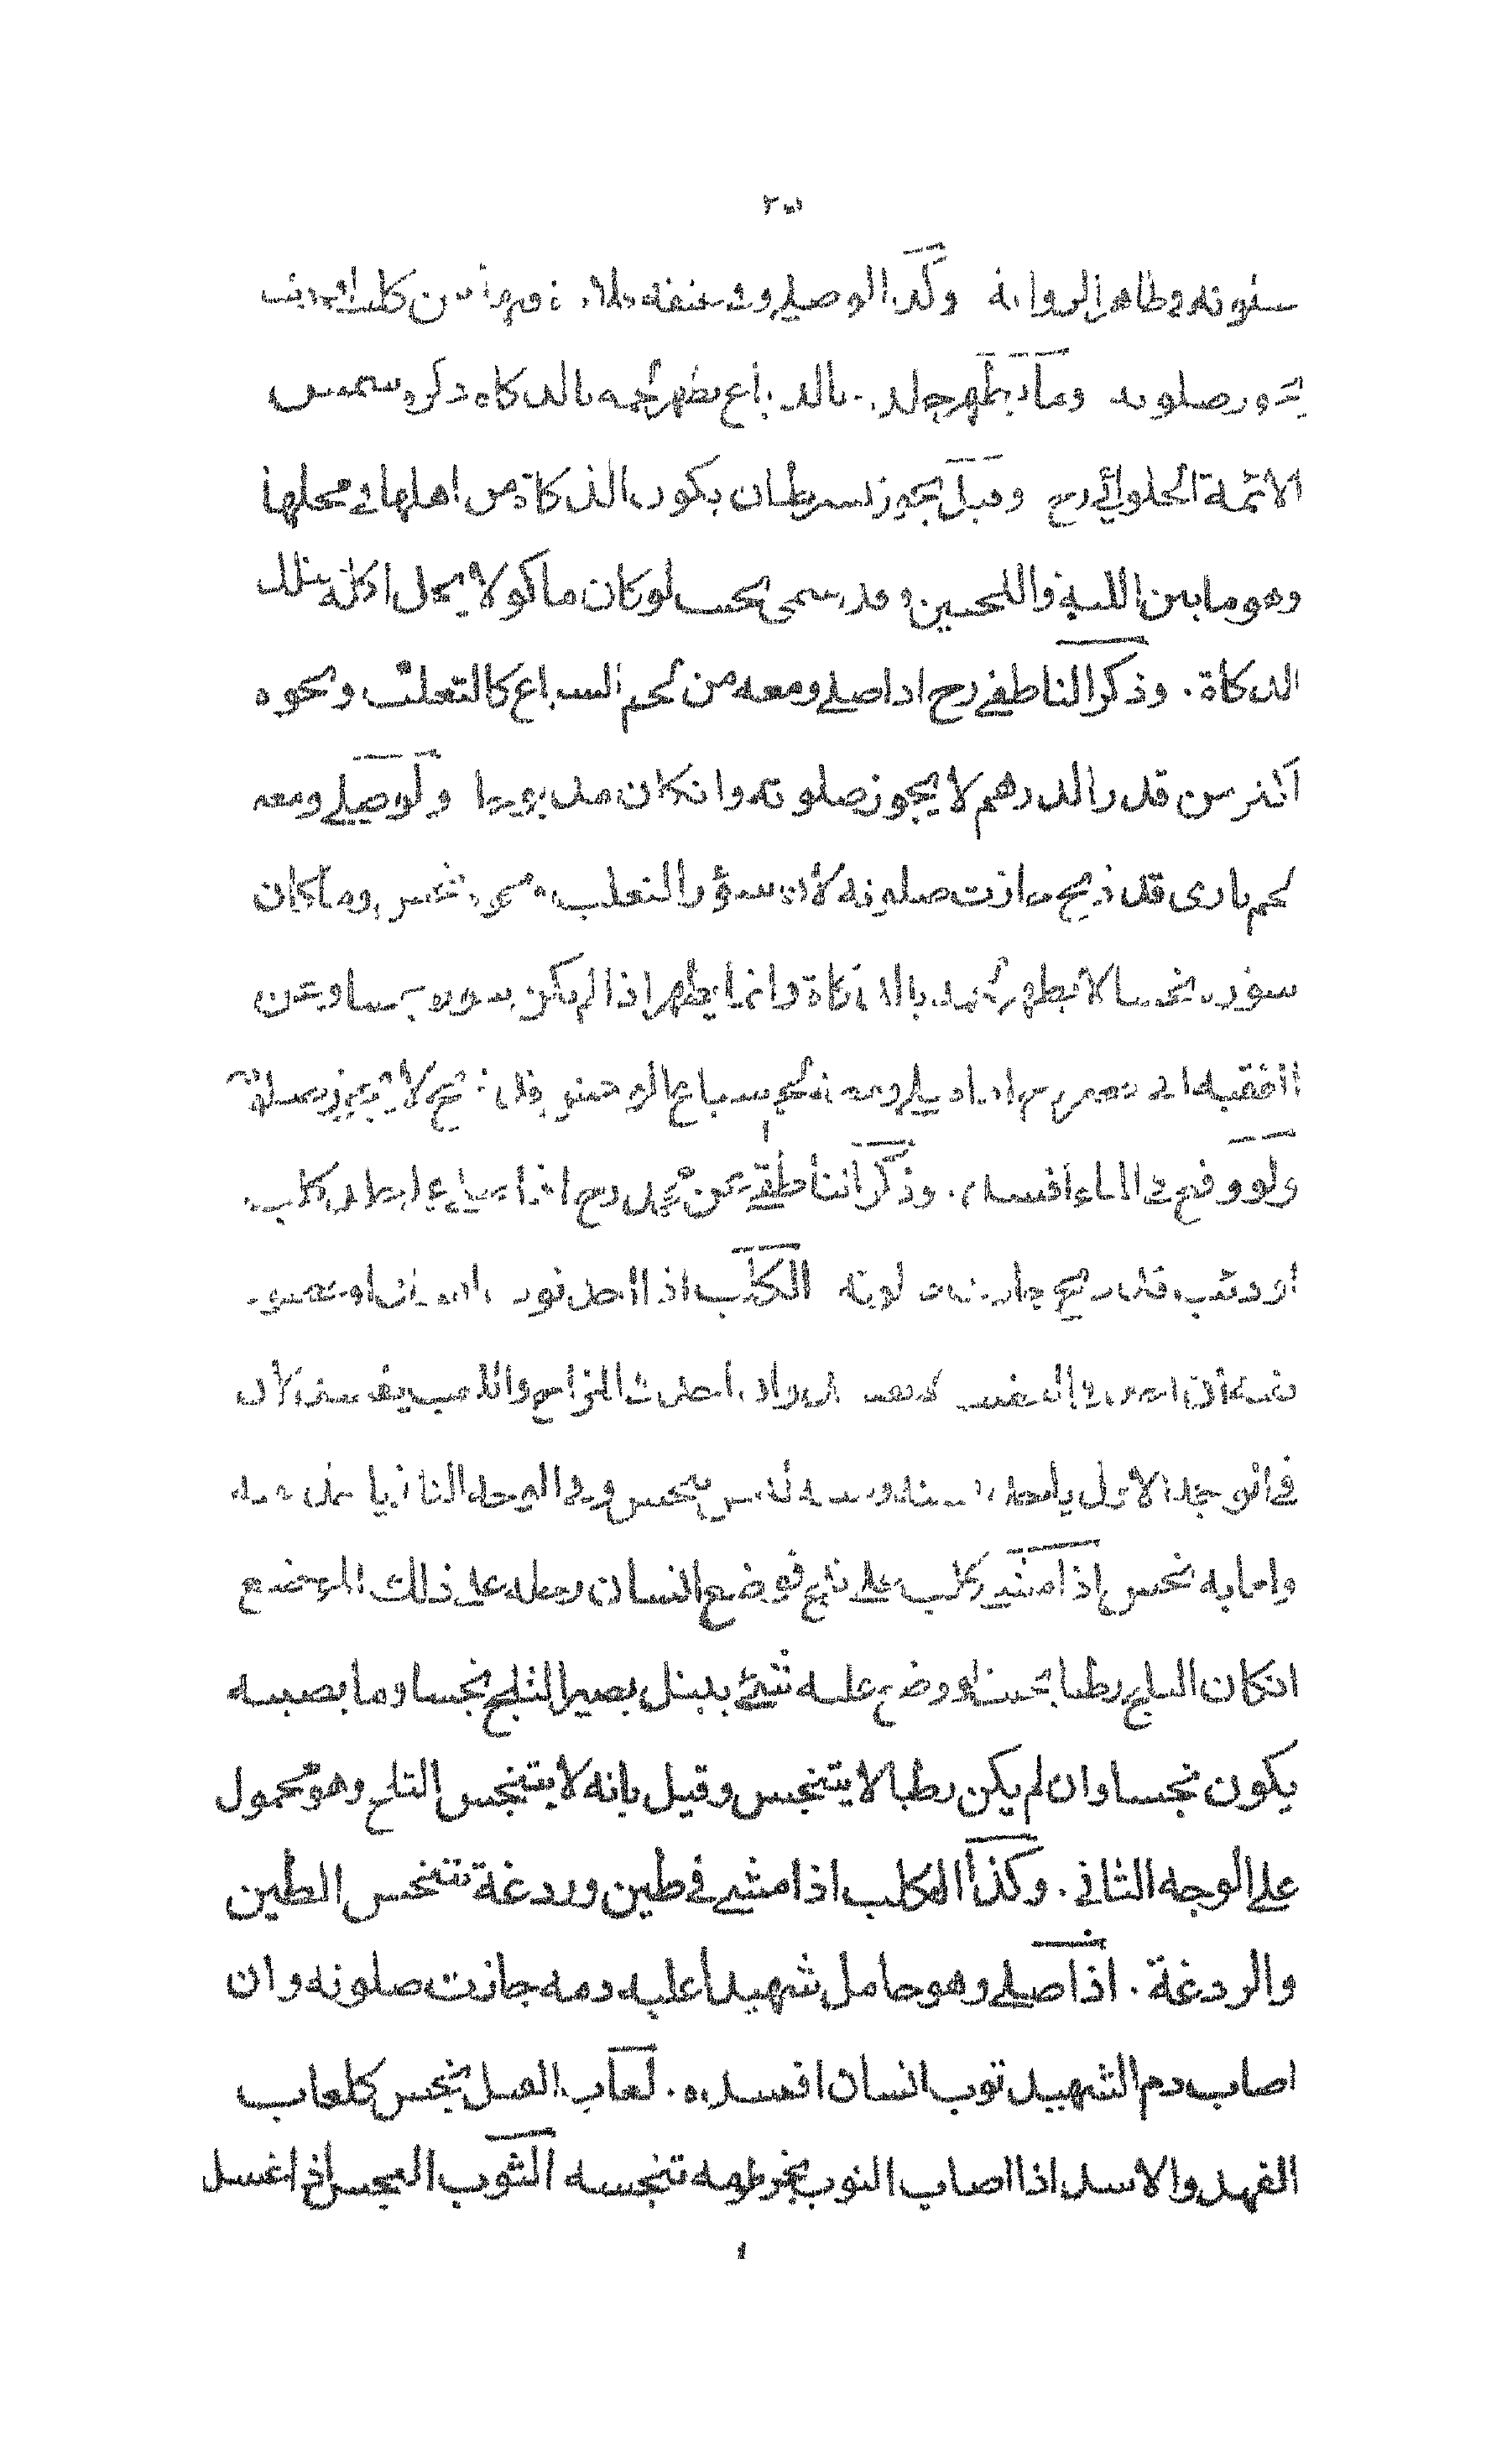 صلوته في ظاهر الرواية وكذا لو صلى وفي عنقه قلادة فيها سن كلب او ذئب
يجوز صلوته وما يطهر جلده بالدباغ يطهر لحمه بالذكاة ذكره شمس
الائمة الحلوائي رح وقيل يجوز بشرط ان يكون الذكاة من اهلها في محلها
وهو ما بين اللبة واللحيين وقد سمى بحيث لو كان ماكولا يحل اكله بتلك
الذكاة . وذكر الناطفي رح اذا صلى ومعه من لحم السباع كالثعلب ونحوه
اكثر من قدر الدرهم لا يجوز صلوته وان كان مذبوحا ولو صلى ومعه
لحم بازى قد ذبح جازت صلوته لان سؤر الثعلب نجس وما كان
سؤره نجسا لا يطهر لحمه بالذكاة وانما يطهر اذا لم يكن سوره نجسا وعن
الفقيه ابى جعفر رح اذا صلى ومعه لحم سباع الوحش قد ذبح لا يجوز صلوته
ولو وقع في الماء افسده . وذكر الناطفي عن محمد رح اذا صلى على جلد كلب
او ذئب قد ذبح جازت صلوته الكلب اذا اخذ ثوب انسان او عضوه
في الوجه الاول ياخذه وليس بنجس وفي الوجه الثاني ياخذه
ولعابه نجس اذا مشى كلب على ثلج فوضع انسان رجله على ذلك الموضع
ان كان الثلج رطبا بحيث لو وضع عليه شيئ يبتل يصير الثلج نجسا وما يصيبه
يكون نجسا وان لم يكن رطبا لا يتنجس وقيل بانه لا يتنجس الثلج وهو محمول
على الوجه الثاني . وكذا الكلب اذا مشى في طين وردغة تتنجس الطين
والردغة . اذا صلى وهو حامل شهيدا عليه دمه جازت صلوته وان
اصاب دم الشهيد ثوب انسان افسده . لعاب الفيل نجس كلعاب
الفهد والاسد اذا اصاب الثوب بخرطومه تنجسه الثوب النجس اذا غسل